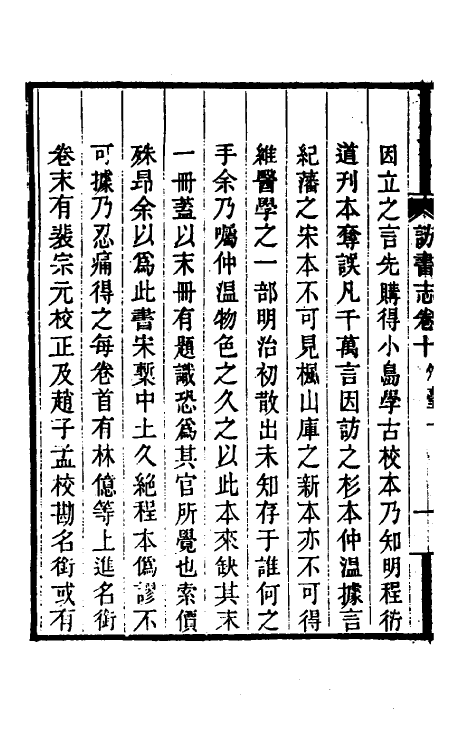 訪書志卷十
因立之言先購得小島學古校本乃知明程衍
道刊本奪誤凡千萬言因訪之杉本仲溫據言
紀藩之宋本不可見楓山庫之新本亦不可得
維醫學之一部明治初散出未知存于誰何之
手余乃囑仲溫物色之久之以此本來缺其末
一冊蓋以末冊有題識恐爲其官所覺也索價
殊昂余以爲此書宋槧中土久絕程本僞謬不
可據乃忍痛得之每卷首有林億等上進名銜
卷末有裴宗元校正及趙子孟校勘名銜或有